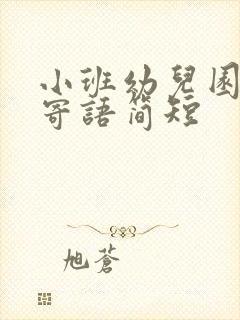 小班幼兒園
寄語简短
旭蒼